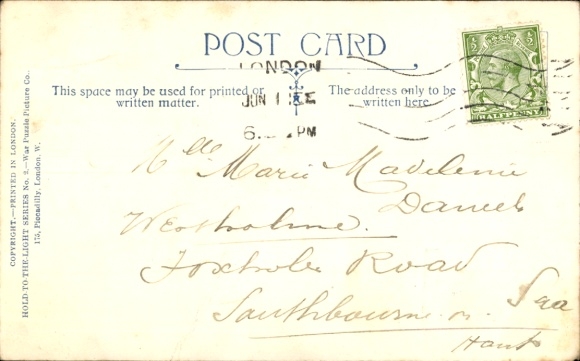 POST CARD
LONDON
This space may be used for printed or
written matter.
The address only to be
written here.
JUN 1
6. PM
HALFPENNY
Mlle Marie Madelenie
Daniels
Westholme.
Foxholes Road
Southbourne on Sea
Hants
COPYRIGHT.—PRINTED IN LONDON.
HOLD-TO-THE-LIGHT SERIES No. 2.—War Puzzle Picture Co.
175, Piccadilly, London, W.